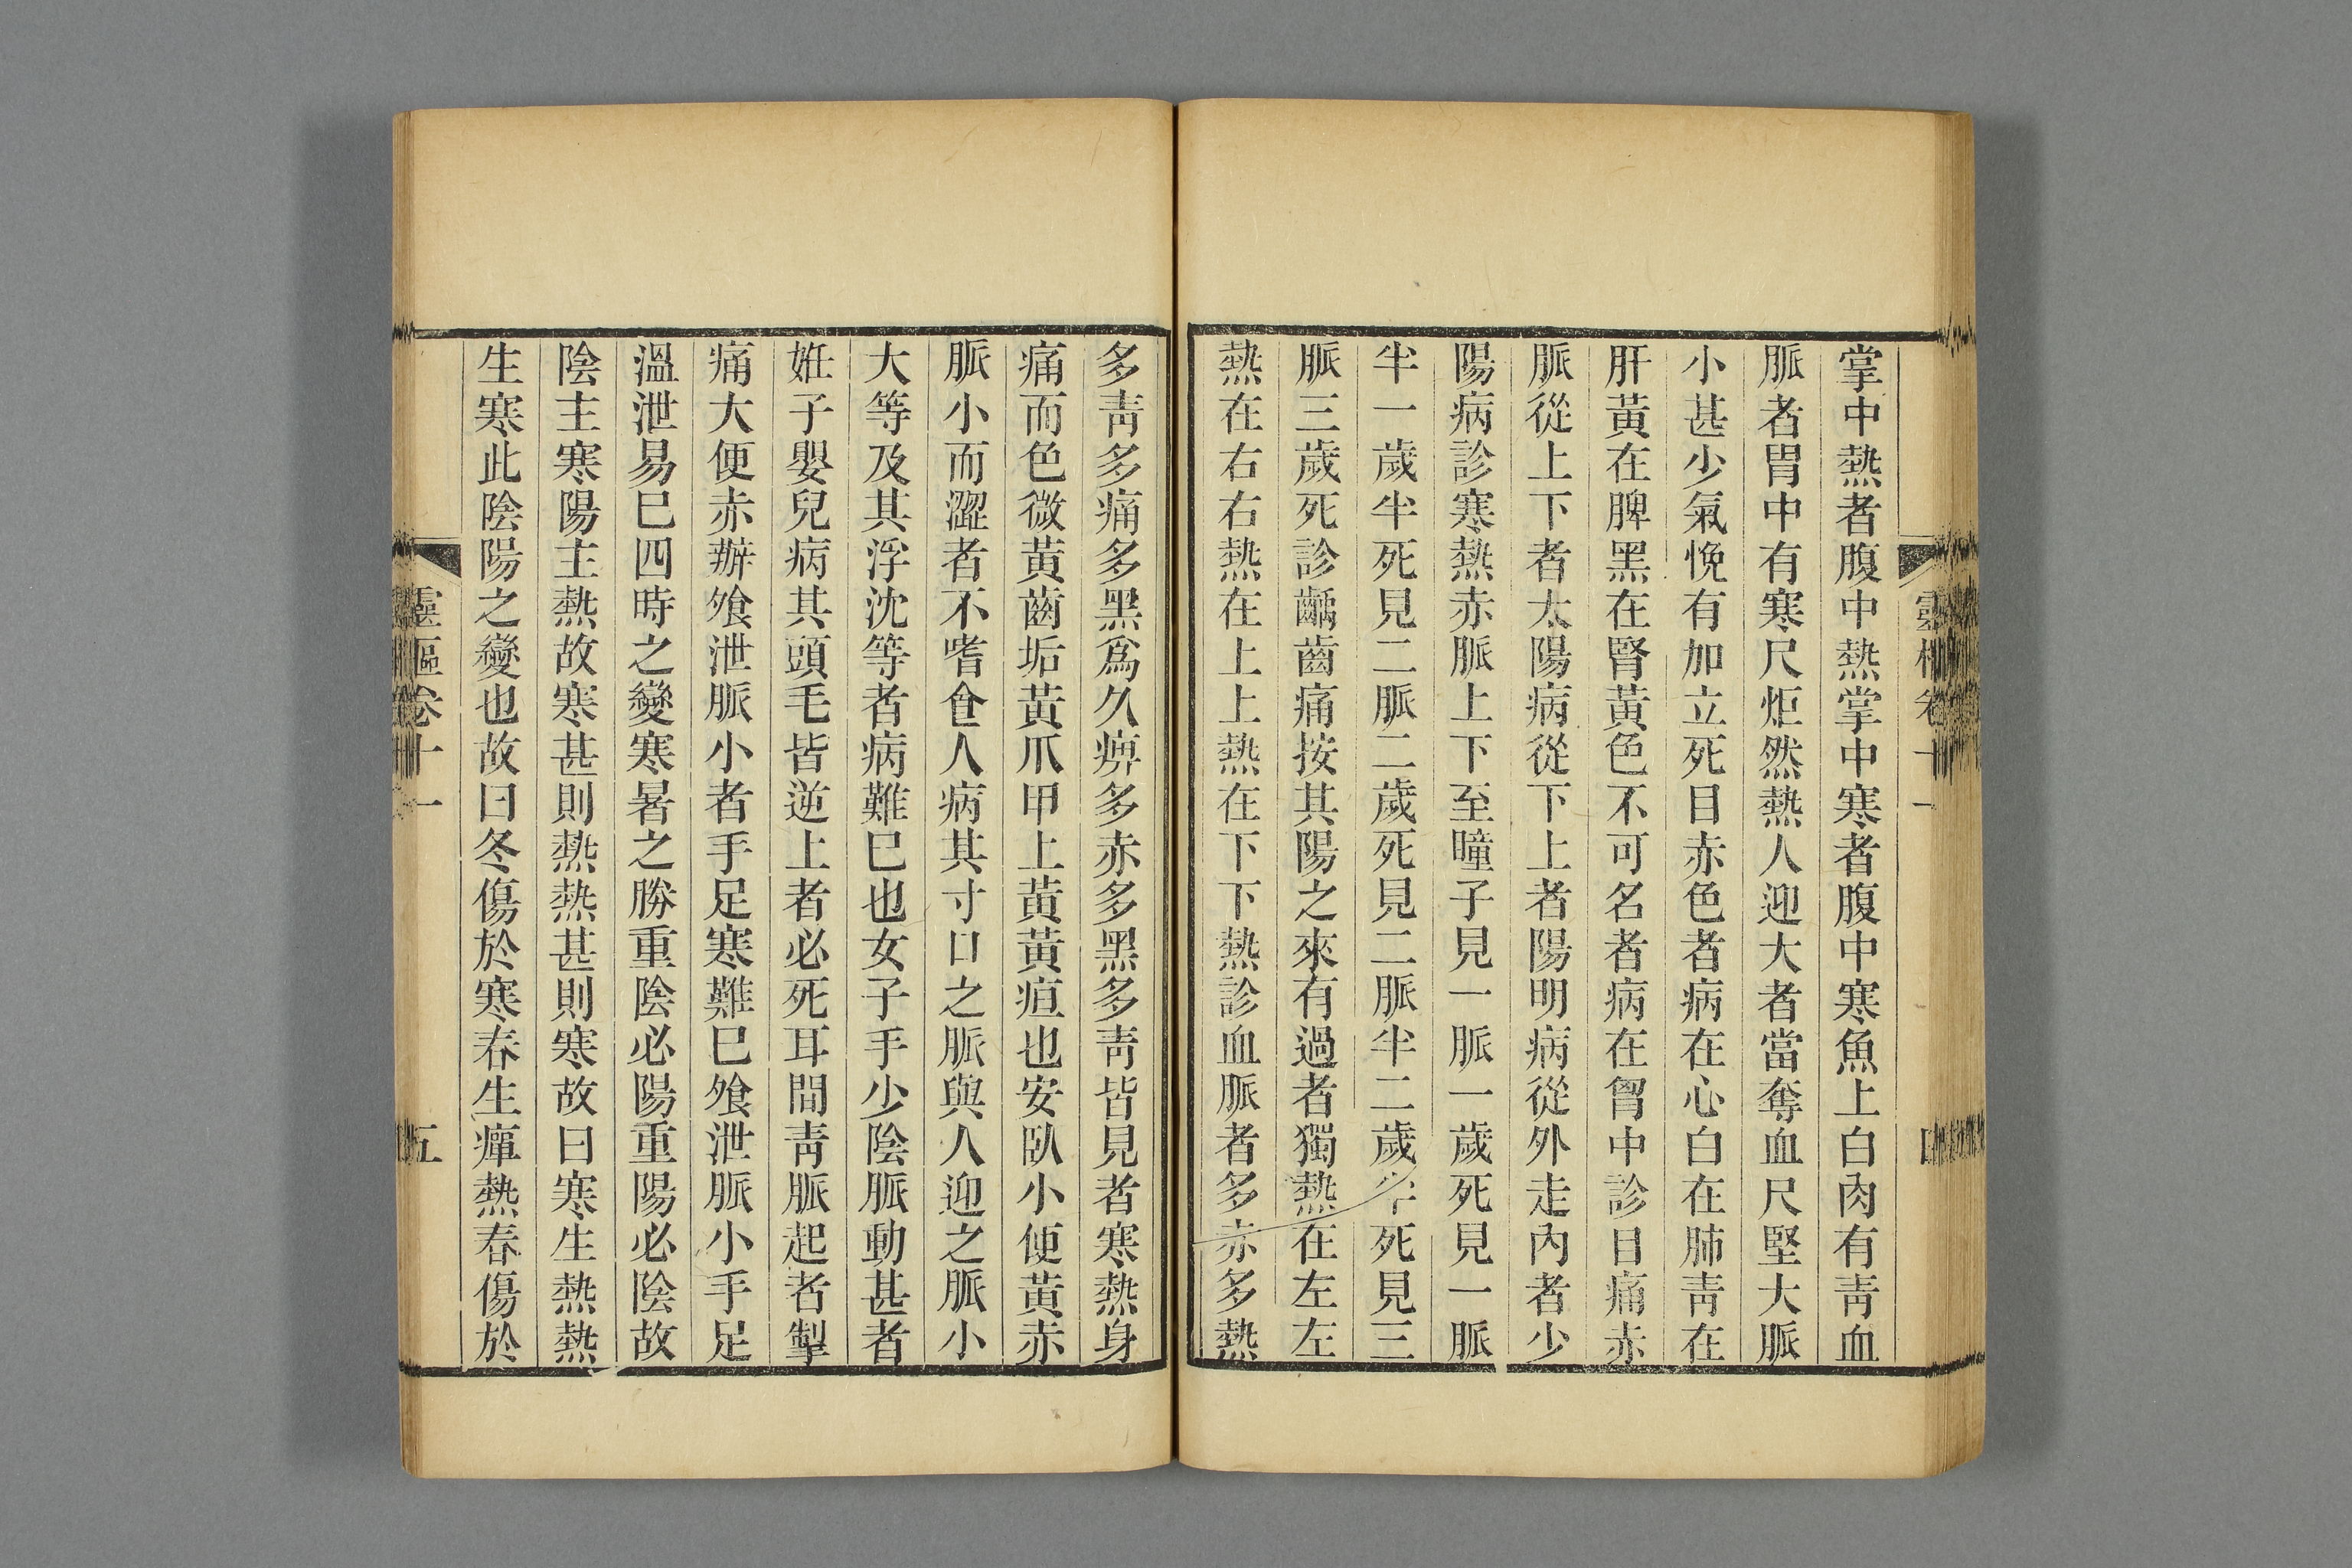 靈樞卷十一
四
掌中熱者腹中熱掌中寒者腹中寒魚上白肉有靑血
脈者胃中有寒尺炬然熱人迎大者當奪血尺堅大脈
小甚少氣悗有加立死目赤色者病在心白在肺靑在
肝黃在脾黑在腎黃色不可名者病在胷中診目痛赤
脈從上下者太陽病從下上者陽明病從外走內者少
陽病診寒熱赤脈上下至瞳子見一脈一歲死見一脈
半一歲半死見二脈二歲死見二脈半二歲半死見三
脈三歲死診齲齒痛按其陽之來有過者獨熱在左左
熱在右右熱在上上熱在下下熱診血脈者多赤多熱
多靑多痛多黑爲久痹多赤多黑多靑皆見者寒熱身
痛而色微黃齒垢黃爪甲上黃黃疸也安臥小便黃赤
脈小而澀者不嗜食人病其寸口之脈與人迎之脈小
大等及其浮沈等者病難巳也女子手少陰脈動甚者
姙子嬰兒病其頭毛皆逆上者必死耳間靑脈起者掣
痛大便赤瓣飧泄脈小者手足寒難巳飧泄脈小手足
溫泄易巳四時之變寒暑之勝重陰必陽重陽必陰故
陰主寒陽主熱故寒甚則熱熱甚則寒故曰寒生熱熱
生寒此陰陽之變也故曰冬傷於寒春生癉熱春傷於
靈樞卷十一
五